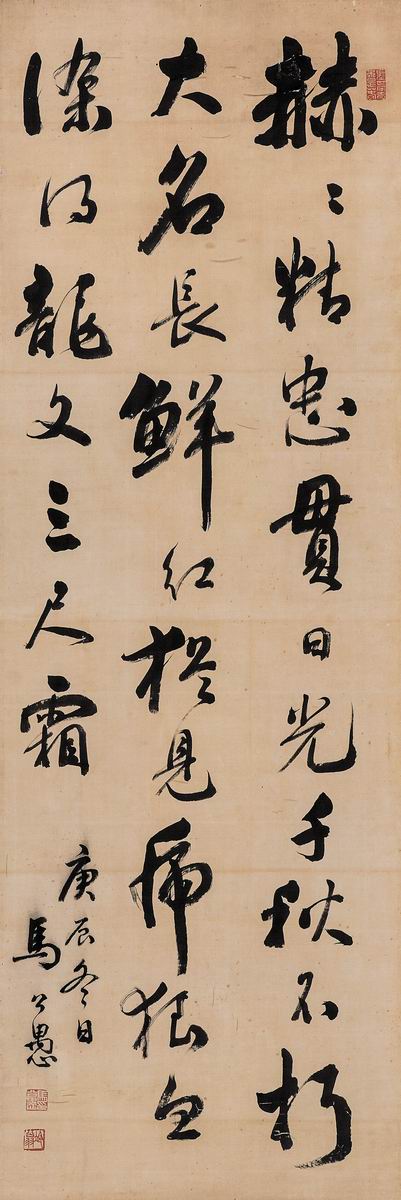 赫〻精忠貫日光千秋不朽
大名長鮮紅見虎狼血
染得龍文三尺霜
庚辰冬日
馬公愚